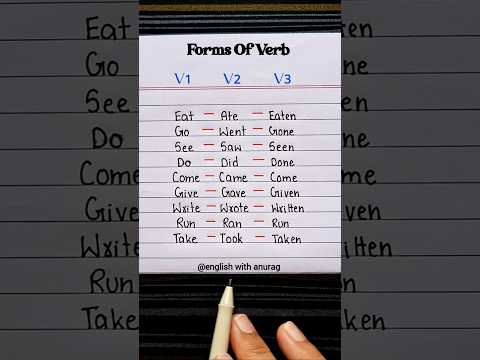 Forms Of Verb
V1 V2 V3
Eat – Ate – Eaten
Go – Went – Gone
See – Saw – Seen
Do – Did – Done
Come – Came – Come
Give – Gave – Given
Write – Wrote – Written
Run – Ran – Run
Take – Took – Taken
@english with anurag
Eat
Go
See
Do
Come
Give
Write
Run
Take
Eaten
Gone
Seen
Done
Come
Given
Written
Run
Taken